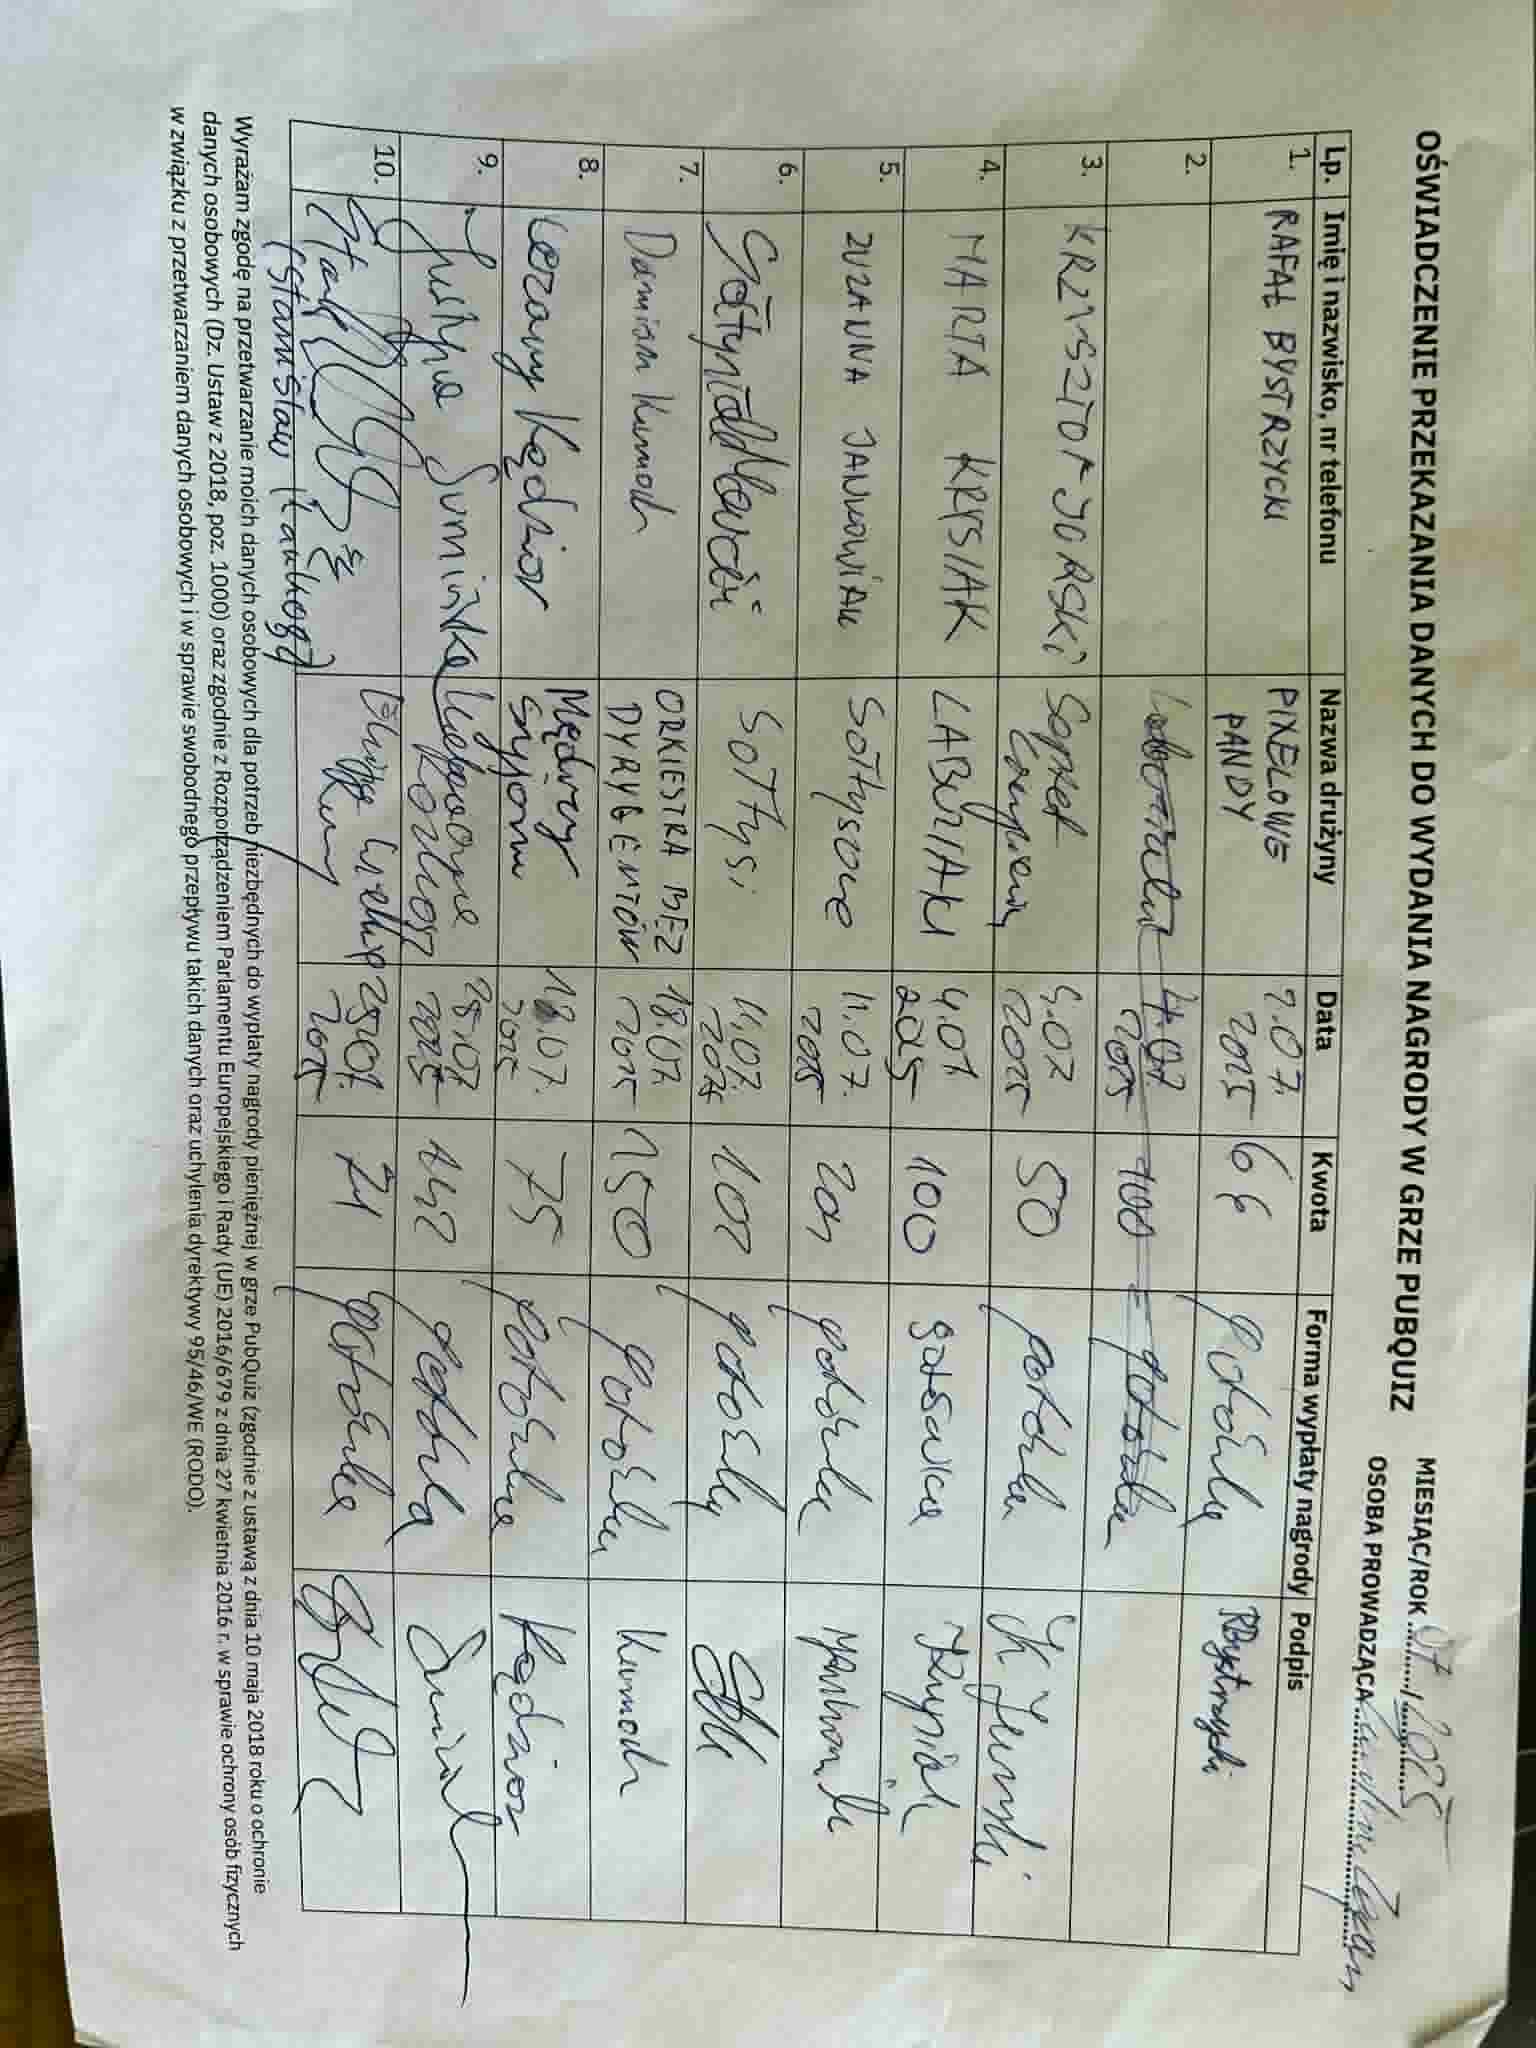 OŚWIADCZENIE PRZEKAZANIA DANYCH DO WYDANIA NAGRODY W GRZE PUBQUIZ
MIESIĄC/ROK 07/2025
OSOBA PROWADZĄCA
Lp. Imię i nazwisko, nr telefonu Nazwa drużyny Data Kwota Forma wypłaty nagrody Podpis
1. RAFAŁ BYSTRZYCKI PIXELOWE PANDY 2.07. 2025 66 gotówka RBystrzycki
2. 4.07. 2025 100 gotówka
3. KRZYSZTOF JURSKI 4.07 2025 50 gotówka K Jurski
4. MARTA KRYSIAK ŁABUZIAKI 4.07 2025 100 gotówka Krysiak
5. ZUZANNA JANKOWIAK Sołtysowe 11.07. 2025 201 gotówka
6. Sołtysi 11.07. 2025 100 gotówka
7. Damian Kumoch ORKIESTRA BEZ DYRYGENTÓW 18.07. 2025 150 gotówka Kumoch
8. Cezary Kędzior Mędrcy Syjonu 18.07. 2025 75 gotówka Kędzior
9. Justyna Sumińska 25.07. 2025 142 gotówka
10. (Stanisław 25.07. 2025 71 gotówka
Wyrażam zgodę na przetwarzanie moich danych osobowych dla potrzeb niezbędnych do wypłaty nagrody pieniężnej w grze PubQuiz (zgodnie z ustawą z dnia 10 maja 2018 roku o ochronie
danych osobowych (Dz. Ustaw z 2018, poz. 1000) oraz zgodnie z Rozporządzeniem Parlamentu Europejskiego i Rady (UE) 2016/679 z dnia 27 kwietnia 2016 r. w sprawie ochrony osób fizycznych
w związku z przetwarzaniem danych osobowych i w sprawie swobodnego przepływu takich danych oraz uchylenia dyrektywy 95/46/WE (RODO).